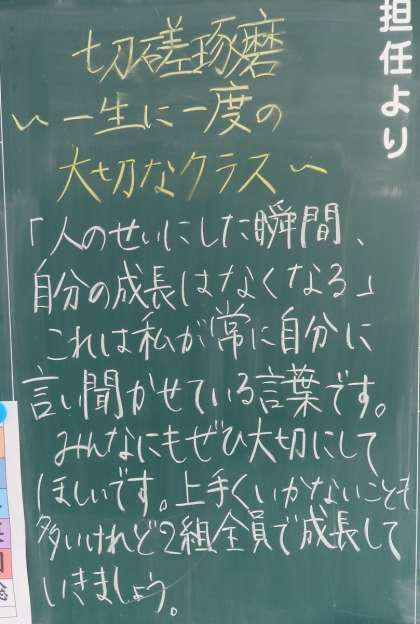 担任より
切磋琢磨
〜一生に一度の
大切なクラス〜
「人のせいにした瞬間、
自分の成長はなくなる」
これは私が常に自分に
言い聞かせている言葉です。
みんなにもぜひ大切にして
ほしいです。上手くいかないことも
多いけれど2組全員で成長して
いきましょう。